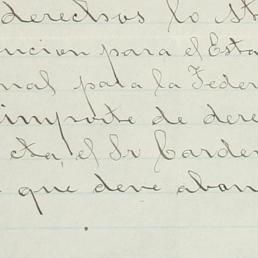 derechos lo st
ncion para el Esta
nal para la Feder
importe de dere
cta, el Sr Carde
que deve aban